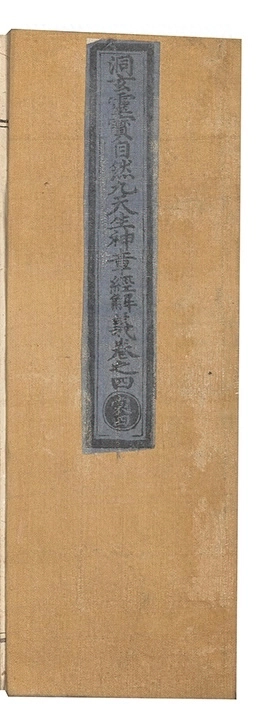 洞玄靈寶自然九天生神章經解義卷之四
四